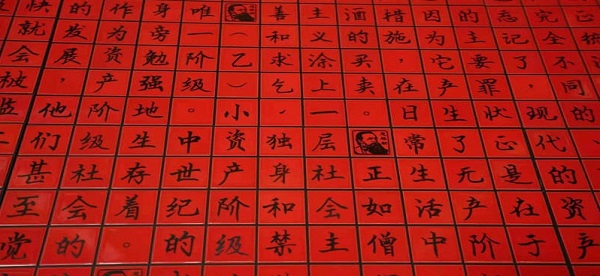 完全不同的
忘记了，现代的资产
的主要罪状正是在于
因为它产生了无产阶
措施，在日常生活中
酒的买卖。正如僧
主义涂上一层社会主
善和求乞、独身和禁
（乙）小资产阶级
唯一阶级。中世纪的
身旁勉强地生存着。
作为资产阶级社会的
的发展，他们甚至觉
快就会被监